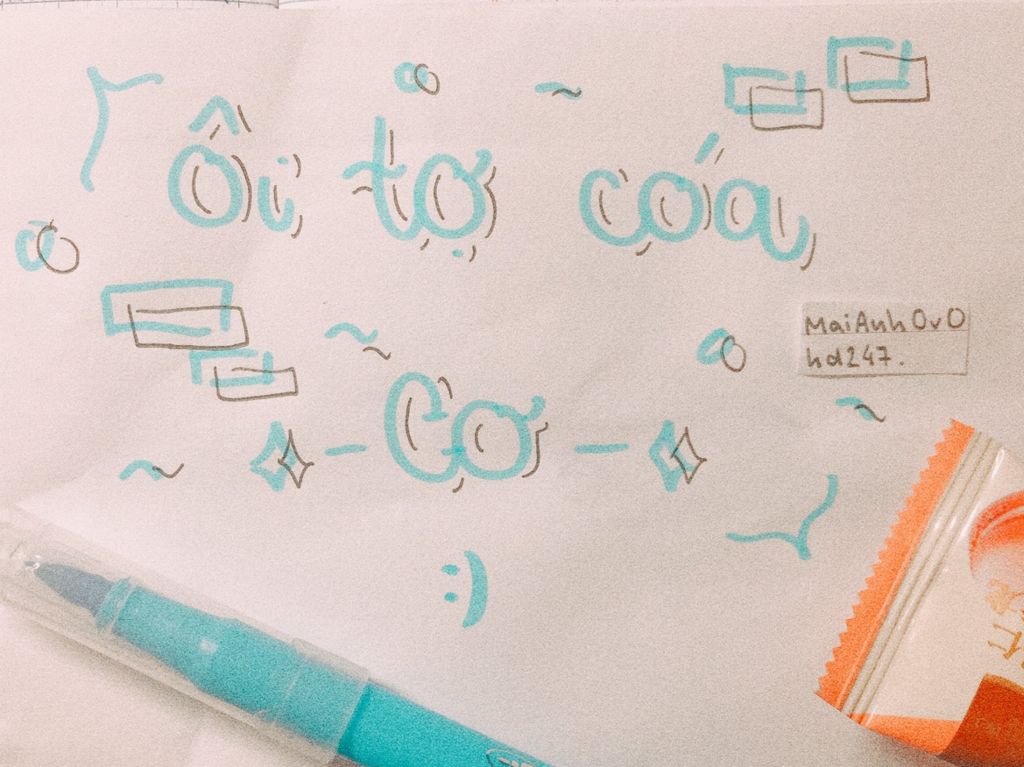 Ôi tợ cóa
MaiAnh0v0
hd247.
- Cơ -
:)